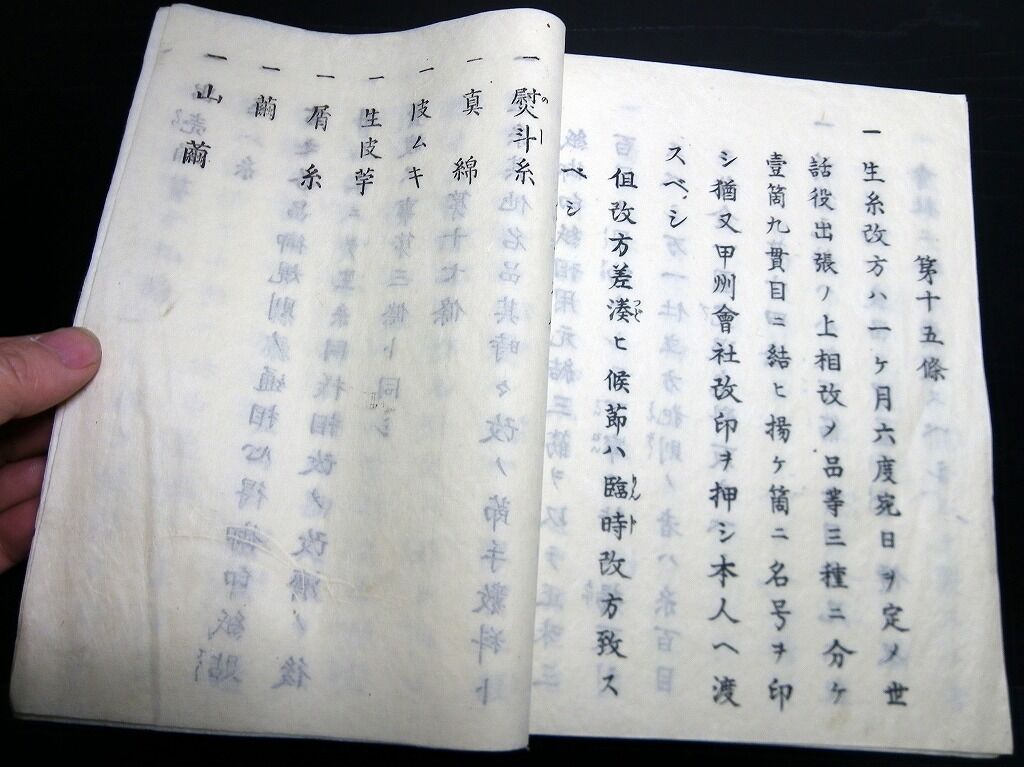 第十五條
一 生糸改方ハ一ヶ月六度宛日ヲ定メ世
話役出張ノ上相改メ品等三種ニ分ケ
壹箇九貫目ニ結ヒ揚ケ箇ニ名号ヲ印
シ猶又甲州會社改印ヲ押シ本人ヘ渡
スベシ
但改方差湊ヒ候節ハ臨時改方致ス
ベシ
一 熨斗糸
一 真綿
一 皮ムキ
一 生皮苧
一 屑糸
一 繭
一 山繭